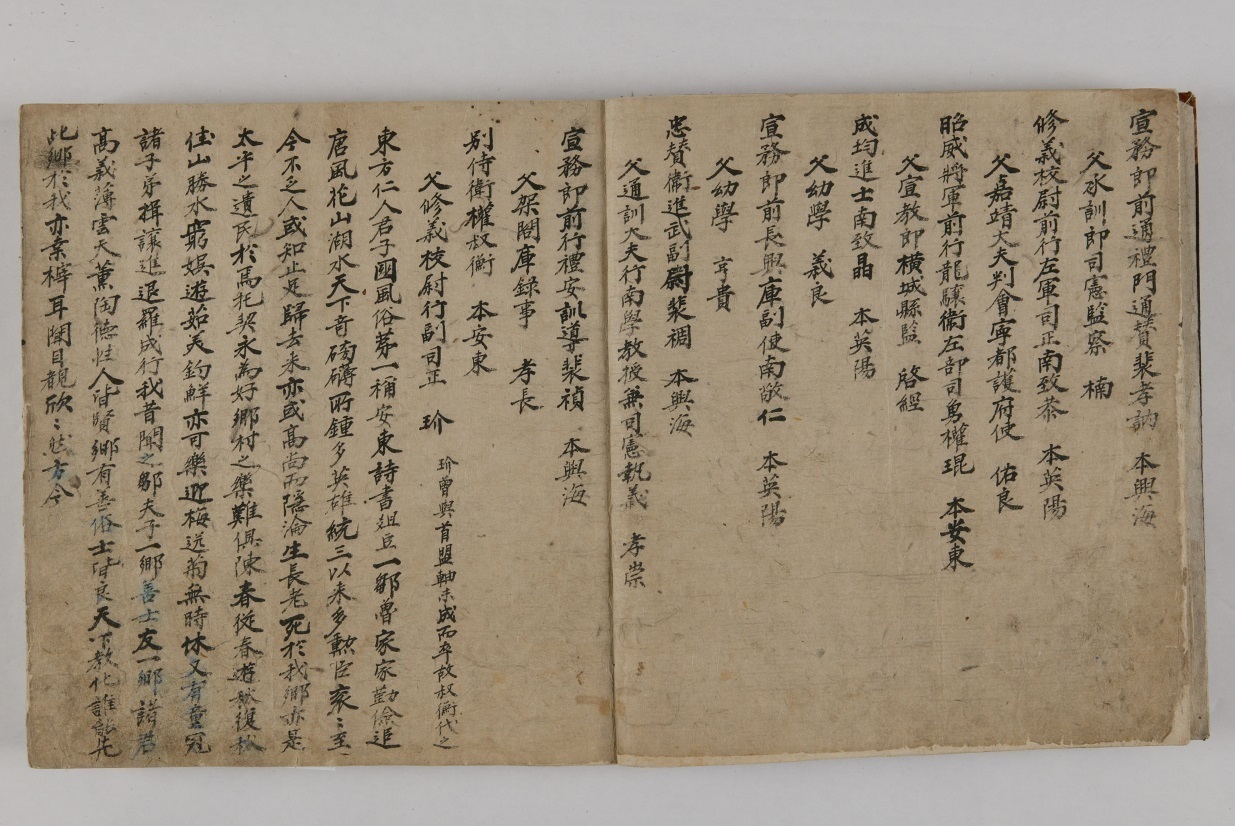 宣務郎前通禮門通贊裴孝訥 本興海
父承訓郎司憲監察 楠
修義校尉前行左軍司正南致恭 本英陽
父嘉靖大夫判會寧都護府使 佑良
昭威將軍前行龍驤衛左部司勇權琨 本安東
父宣教郎橫城縣監 啓經
成均進士南致晶 本英陽
父幼學 義良
宣務郎前長興庫副使南敬仁 本英陽
父幼學 亨貴
忠贊衛進武副尉裴裯 本興海
父通訓大夫行南學教授兼司憲執義 孝崇
宣務郎前行禮安訓導裴禎 本興海
父架閣庫錄事 孝長
別侍衛權叔衡 本安東
父修義校尉行副司正 玠 玠曾與首盟軸未成而卒故叔衡代之
東方仁人君子國風俗苐一稱安東詩書俎豆一鄒魯家家勤儉追
唐風花山湖水天下奇磅礴所鍾多英雄統三以来多勲臣衮〻至
今不乏人或知止足歸去来亦或高尚而隱淪生長老死於我鄉亦是
太平之遺民於焉托契永為好鄉村之樂難俱陳春從春遊秋復秋
佳山勝水窮娛遊茹美釣鮮亦可樂迎梅送菊無時休又有童冠
諸子弟揖讓進退羅成行我昔聞之鄒夫子一鄉善士友一鄉諸君
高義薄雲天薰陶德性人皆賢鄉有善俗士皆良天下教化誰能先
此鄉於我亦桑梓耳聞目覩欣〻然方今